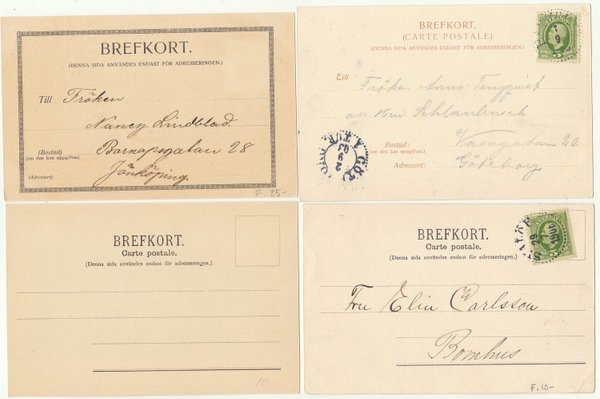 BREFKORT.
(DENNA SIDA ANVÄNDES ENDAST FÖR ADRESSERINGEN.)
Till Fröken
Nancy Lindblad.
(Bostad)
(om den kan uppgifvas)
Barnarpsgatan 28
(Adressort)
Jönköping
F. 25-
BREFKORT.
(CARTE POSTALE)
(DENNA SIDA ANVÄNDES ENDAST FÖR ADRESSERINGEN.)
Till
Fröken Anna
Bostad:
(om den kan uppgifvas)
Vasagatan 20.
Adressort:
Göteborg
BREFKORT.
Carte postale.
(Denna sida användes endast för adresseringen.)
10-
BREFKORT.
Carte postale.
(Denna sida användes endast för adresseringen.)
Fru Elin Carlsson
Bomhus
F. 10-